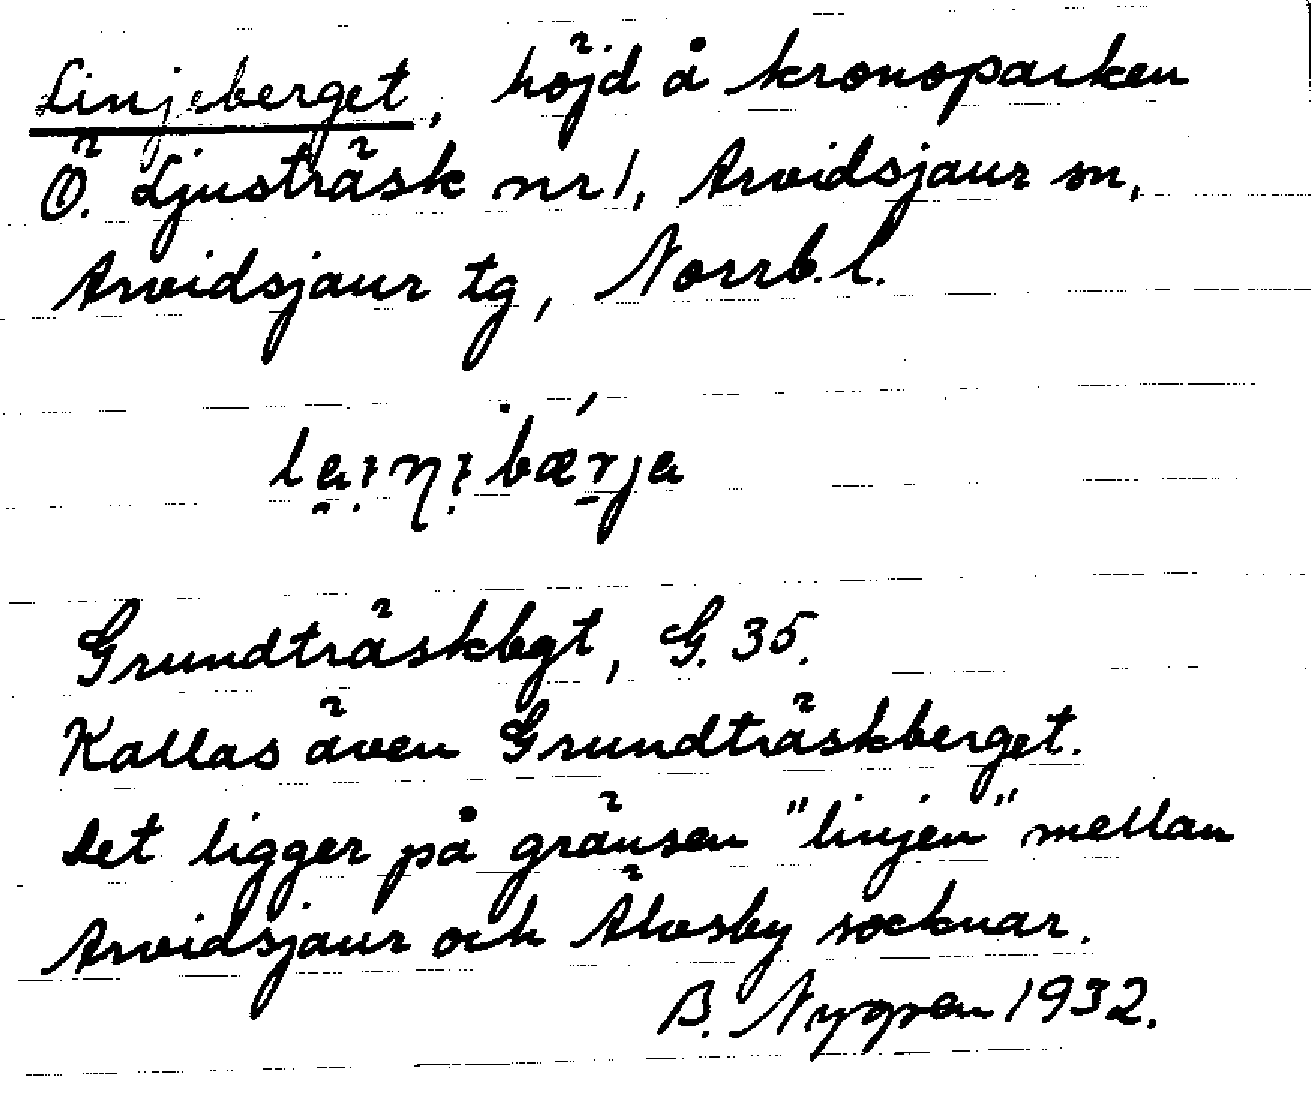 Linjeberget, höjd å kronoparken
Ö. Ljusträsk nr 1, Arvidsjaur sn,
Arvidsjaur tg, Norrb. l.
Grundträskbgt, G. 35.
Kallas även Grundträskberget.
Det ligger på gränsen "linjen" mellan
Arvidsjaur och Älvsby socknar.
B. Nygren 1932.